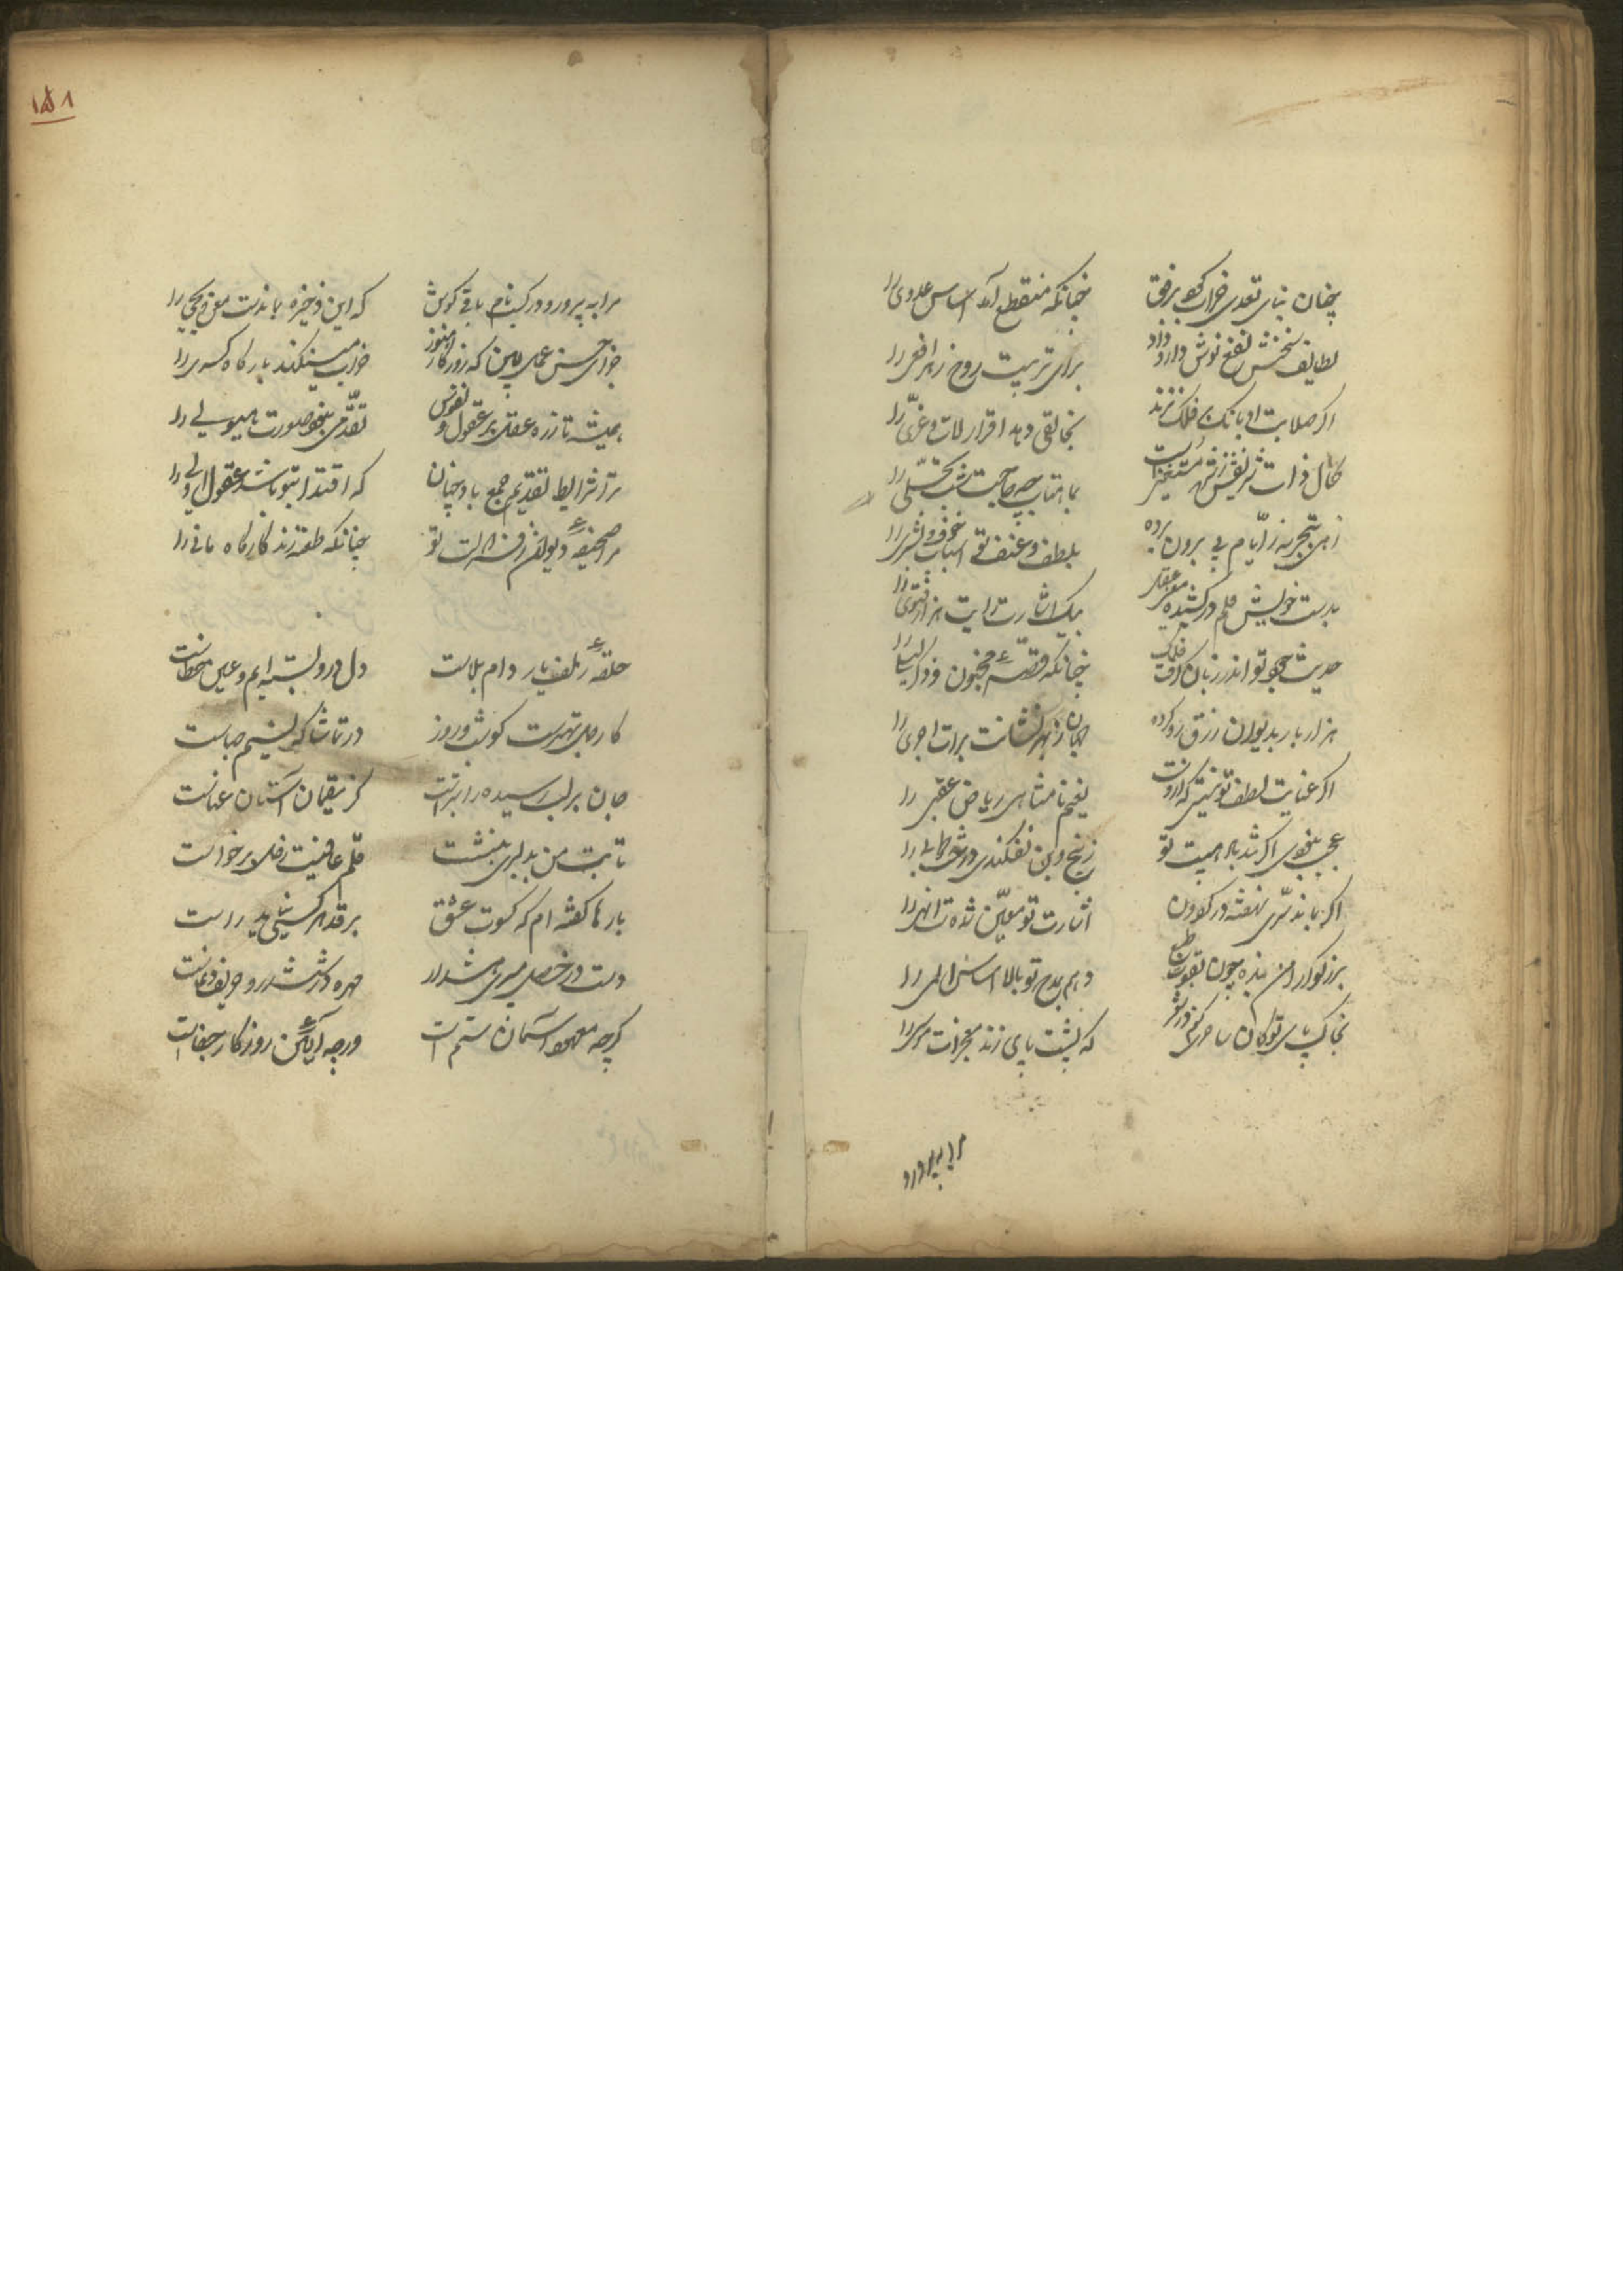 چنان بنای تعدی خراب کرد برفق
چنانکه منقطع آمد اساس عدوی را
لطایف سخنش نفع نوش دارو داد
برای تربیت روح زهر افعی را
اگر صلابت او بانگ بر فلک نزند
بخالقی دهد اقرار لات و عزّی را
کمال ذات شریفش ز شرح مستغنیست
بماهتاب چه حاجت شب تجلّی را
زهی بتجربه ز ایّام پی برون برده
بلطف و عنف تو اسباب خیر و شر را
بدست خویش قلم درکشیده مفتی عقل
بیک اشارت رایت هزار فتوی را
حدیث هجو تو اندر زبان گرفت فلک
چنانکه قصهٔ مجنون و ذکر لیلی را
هزار بار بدیوان رزق رو کرده
جهان ز بهر نشانت برات اجری را
اگر عنایت لطف تو نیستی که ازوست
نعیم نامتناهی ریاض عقبی را
عجب نبودی اگر تندباد هیبت تو
ز بیخ و بن نفکندی درخت طوبی را
اگر بماند سرّی نهفته در گردون
اشارت تو معیّن شده‌ست انهی را
بزرگوارا من بنده چون بقوت طبع
دهم بمدح تو بالا اساس املی را
بخاک پای تو کان ساحری کنم در شعر
که پشت پای زند معجزات موسی را
مرا بپرور
۱۵۸
مرا بپرور و در کسب نام باقی کوش
که این ذخیره بماندست معن و یحیی را
جزای حسن عمل بین که روزگار هنوز
خراب می نکند بارگاه کسری را
همیشه تا ز ره عقل بر عقول و نفوس
تقدّمی نبود صورت هیولی را
ترا شرایط تقدیم جمع باد چنان
که اقتدا بتو باشد عقول اولی را
مرا صحیفهٔ دیوان ز فرّ مدحت تو
چنانکه طعنه زند کارگاه مانی را
حلقهٔ زلف یار دام بلاست
دل درو بسته ایم و عین خطاست
کار من بهترست کو شب و روز
در تماشاگه نسیم صباست
جان بر لب رسیده را بترست
کز مقیمان آستان عناست
تا بت من بدلبری بنشست
قلم عافیت ز من برخواست
بارها گفته ام که کسوت عشق
بر قد هر کسی نیاید راست
دست در خصل میبری هشدار
مهره در ششدر و حریف دغاست
گرچه معهود آسمان ستم است
ورچه آیین روزگار جفاست